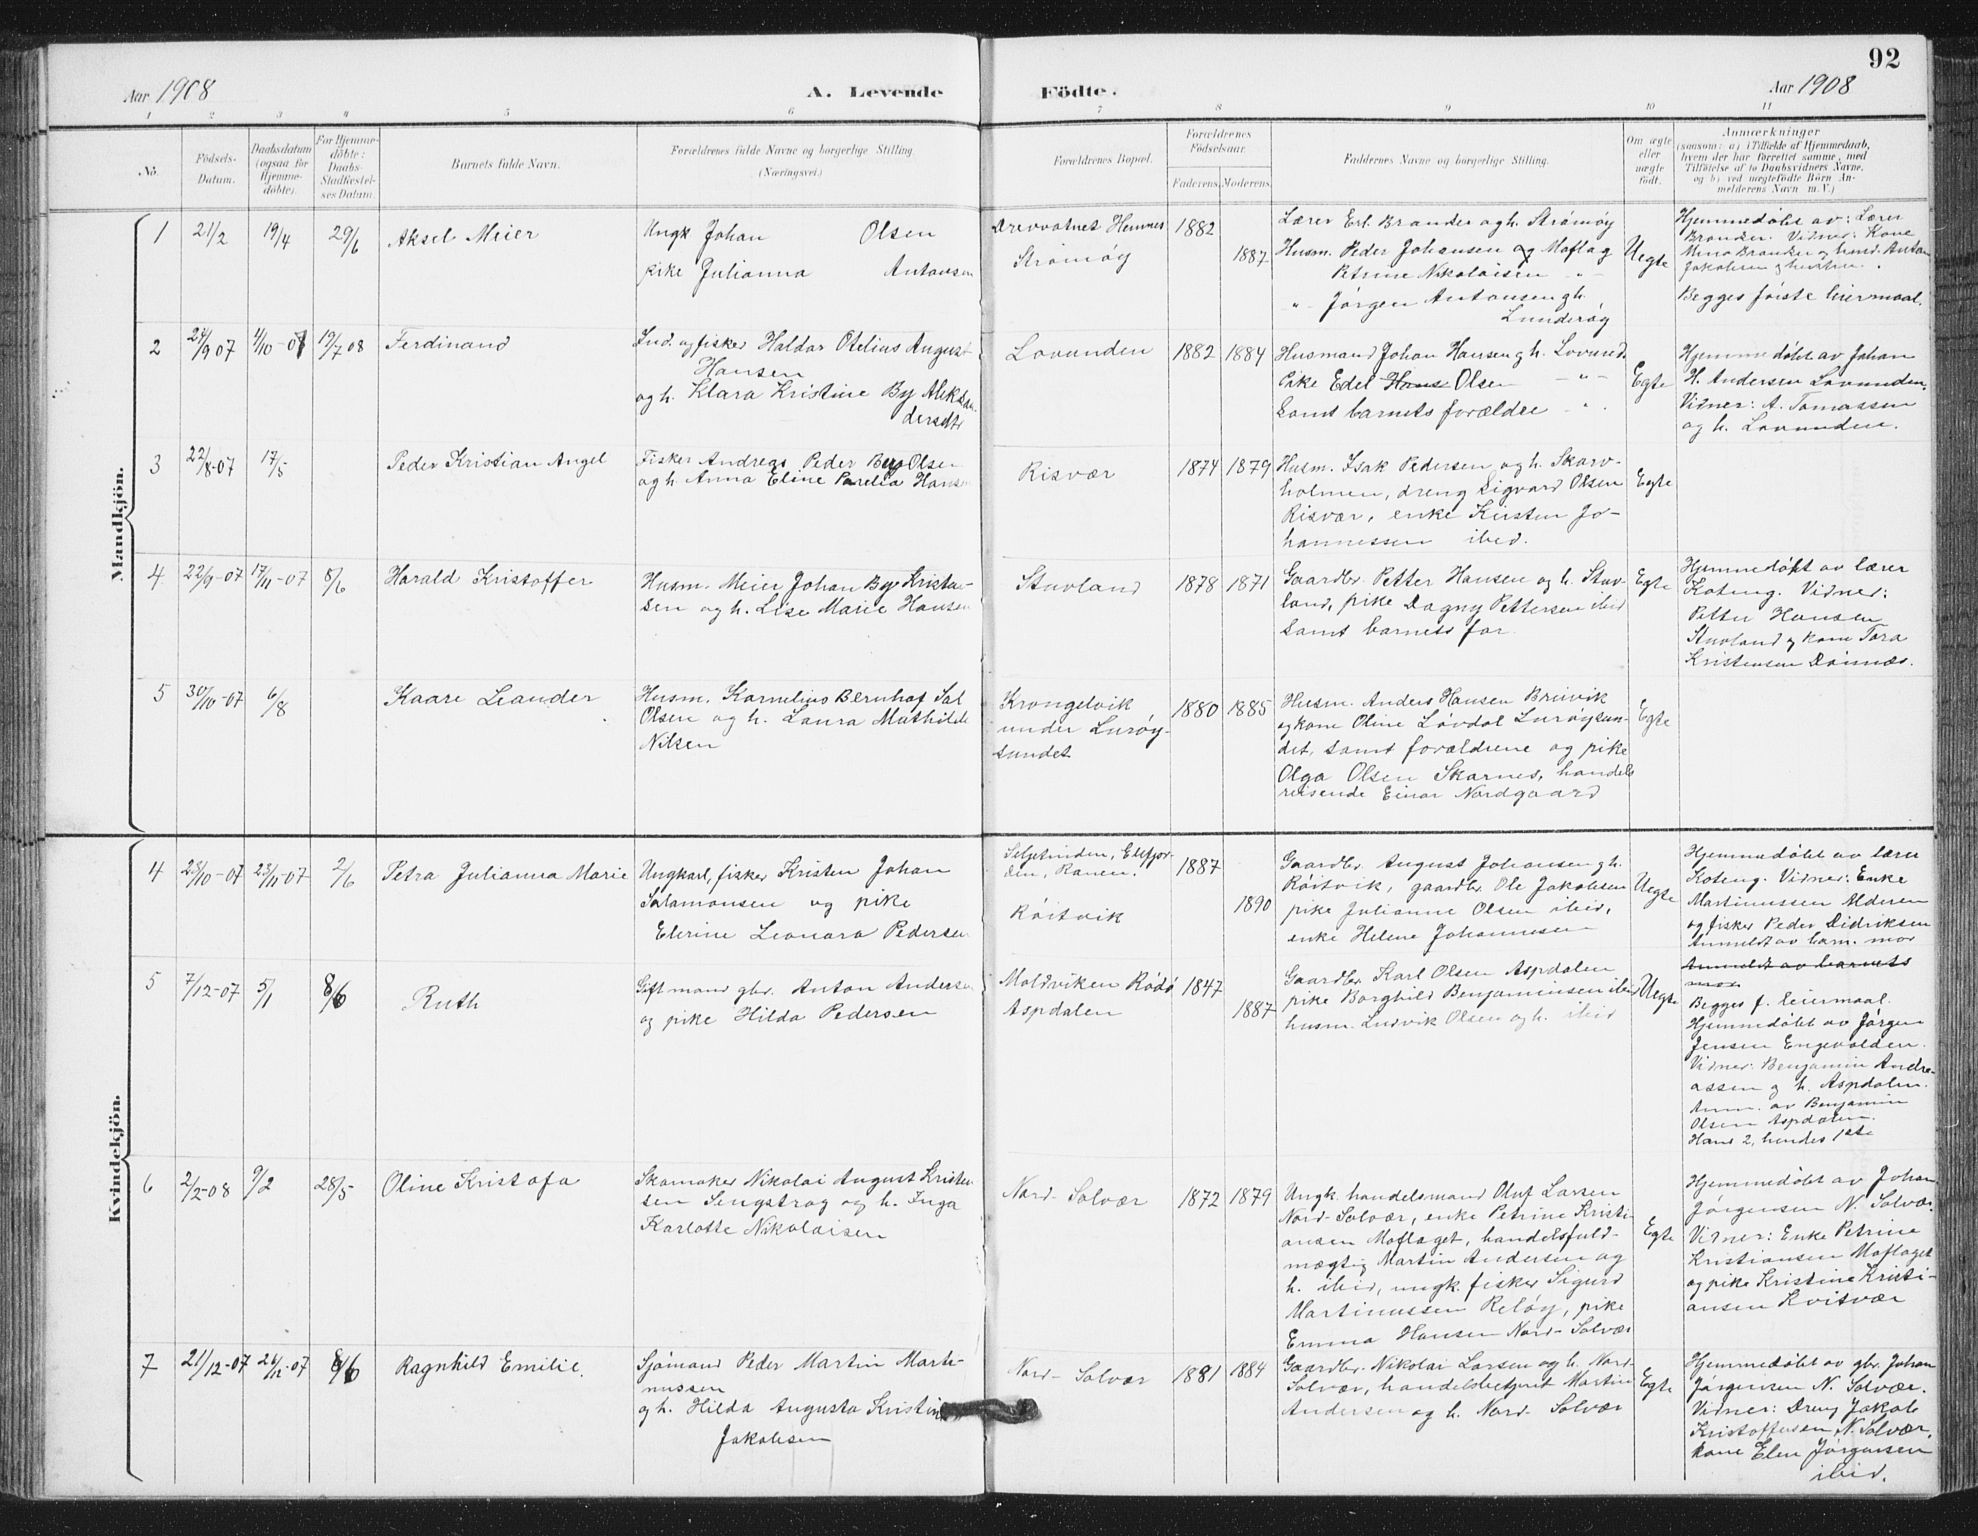 92
Aar 1908
A. Levende Födte.
Aar 1908
1 2 3 4 5 6 7 8 9 10 11
No.
Födsels-Datum.
Daabsdatum (ogsaa for Hjemmedöbte).
For Hjemmedöbte: Daabs-Stadfæstelses Datum.
Barnets fulde Navn.
Forældrenes fulde Navne og borgerlige Stilling. (Næringsvei.)
Forældrenes Bopæl.
Forældrenes Födselsaar.
Faderens. Moderens.
Faddernes Navne og borgerlige Stilling.
Om ægte eller uægte født.
Anmærkninger
(saasom: a) i Tilfælde af Hjemmedaab, hvem der har forrettet samme, med Tilföielse af to Daabsvidners Navne, og b) ved uægtefödte Börn Anmelderens Navn m. V.)
Mandkjön.
1 21/2 19/4 29/6 Aksel Meier
Ungk Johan Olsen
pike Julianna Antonsen
Drevvatnet Hemnes
Strömöy
1882
1887
Lærer Erl. Brander og h. Strömöy
Husm. Peder Johansen og Moflag
Petrine Nikolaisen -"-
" Jörgen Antonsen gh.
Lunderøy
Uegte
Hjemmedøbt av: Lærer
Brander. Vidner: Kone
Brander og husm. Anton
Jakobsen og hustru.
Begges første leiermaal.
2 24/9 07 4/10-07 19/7 08 Ferdinand
Ind. og fisker Haldor Otelius August
Hansen
og h. Klara Kristine By Aleksan-
dersdtr
Lovunden
1882 1884
Husmand Johan Hansen gh. Lovund.
Pike Edel Hans Olsen -"-
Samt barnets forældre "
Egte
Hjemmedøbt av Johan
H. Andersen Lovunden.
Vidner: A. Tomassen
og h. Lovunden.
3 22/8-07 17/5 Peder Kristian Angel
Fisker Andreas Peder Olsen
og h. Anna Eline Hansen
Risvær
1874 1879
Husm. Isak Pedersen og h. Skarv-
holmen, dreng Sigvard Olsen
Risvær, enke Kirsten Jo-
hannessen ibid.
Egte
4 22/9-07 17/11-07 8/6 Harald Kristoffer
Husm. Meier Johan By Kristian-
sen og h. Lise Marie Hansen
Stuvland
1878 1871
Gaardbr. Petter Hansen og h. Stuv-
land, pike Dagny Pettersen ibid
Samt barnets far.
Egte
Hjemmedøpt av lærer
Koteng. Vidner:
Petter Hansen
Stuvland og kone Tora
Kristensen Dønnes.
5 30/10-07 6/8 Kaare Leander
Husm. Kornelius Bernhof Sal
Olsen og h. Laura Mathilde
Nilsen
Krongelvik
under Lurøy-
sundet
1880 1885
Husm. Anders Hansen Breivik
og kone Oline Løvdal Lurøysun-
det, samt forældrene og pike
Olga Olsen Skarnes, handels
reisende Einar Nordgaard
Egte
Kvindekjön.
4 23/10-07 23/11-07 2/6 Petra Julianna Marie
Ungkarl, fisker Kristen Johan
Salamonsen og pike
Elerine Leonara Pedersen
Seljetinden, Elsfjor-
den, Ranen.
Röitvik
1887
1890
Gaardbr. August Johansen gh.
Röitvik, gaardbr. Ole Jakobsen
pike Julianne Olsen ibid,
enke Helene Johannesen
Uegte
Hjemmedøbt av lærer
Koteng. Vidner: Enke
Martinussen Alderen
og fisker Peder Didriksen
Anmeldt av barn. mor
Anmeldt av barnets
mor
Begges f. leiermaal.
5 7/12-07 5/1 8/6 Ruth
Gift mand gbr. Anton Andersen
og pike Hilda Pedersen
Moldviken Rödö
Aspdalen
1847
1887
Gaardbr. Karl Olsen Aspdalen
pike Borghild Benjaminsen ibid
husm. Ludvik Olsen og h. ibid
Uegte
Hjemmedøbt av Jörgen
Jensen Engevolden.
Vidner: Benjamin Andre-
assen og h. Aspdalen.
Anm. av Benjamin
Olsen Aspdalen.
Hans 2, hendes 1ste
6 2/2-08 9/2 28/5 Oline Kristofa
Skomaker Nikolai August Kristen-
sen Sengstrag og h. Inga
Karlotte Nikolaisen
Nord-Solvær
1872 1879
Ungk. handelsmand Oluf Larsen
Nord-Solvær, enke Petrine Kristi-
ansen Moflaget, handelsfuld-
mægtig Martin Andersen og
h. ibid, ungk. fisker Sigurd
Martinussen Reløy, pike
Emma Hansen Nord-Solvær
Egte
Hjemmedøbt av Johan
Jørgensen N. Solvær.
Vidner: Enke Petrine
Kristiansen Moflaget
og pike Kristine Kristi-
ansen Kvitvær
7 21/12-07 26/12-07 8/6 Ragnhild Emilie.
Sjømand Peder Martin Marti-
nussen
og h. Hilda Augusta Kristine
Jakobsen
Nord-Solvær
1881 1884
Gaardbr. Nikolai Larsen og h. Nord-
Solvær, handelsbetjent Martin
Andersen og h. Nord-Solvær
Egte
Hjemmedøbt av gbr. Johan
Jørgensen N. Solvær.
Vidner: Dreng Jakob
Kristoffersen N. Solvær,
kone Elen Jørgensen
ibid.